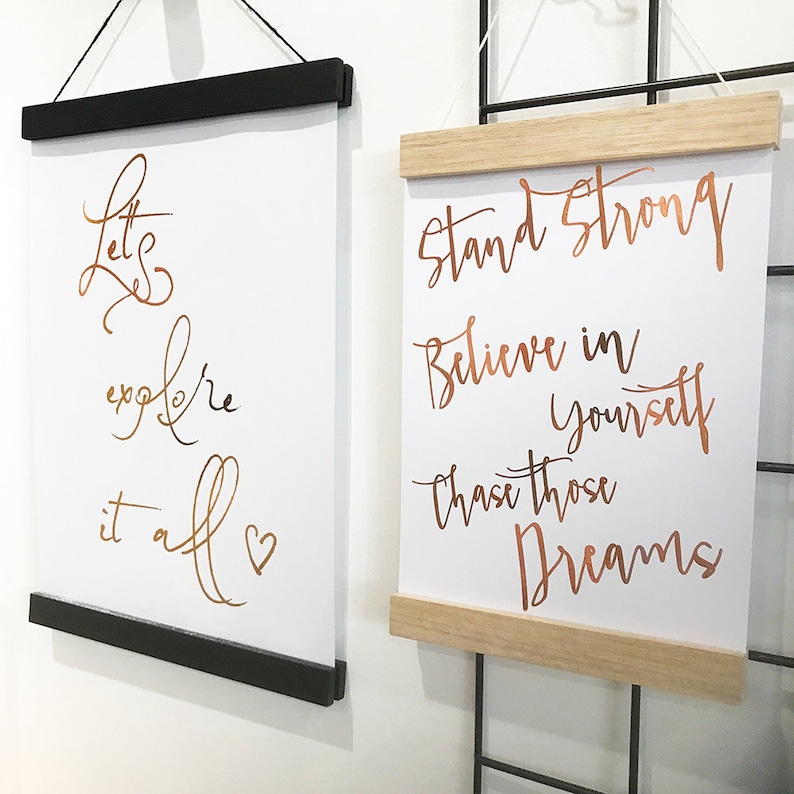 Let's
explore
it all
Stand Strong
Believe in
Yourself
Chase those
Dreams